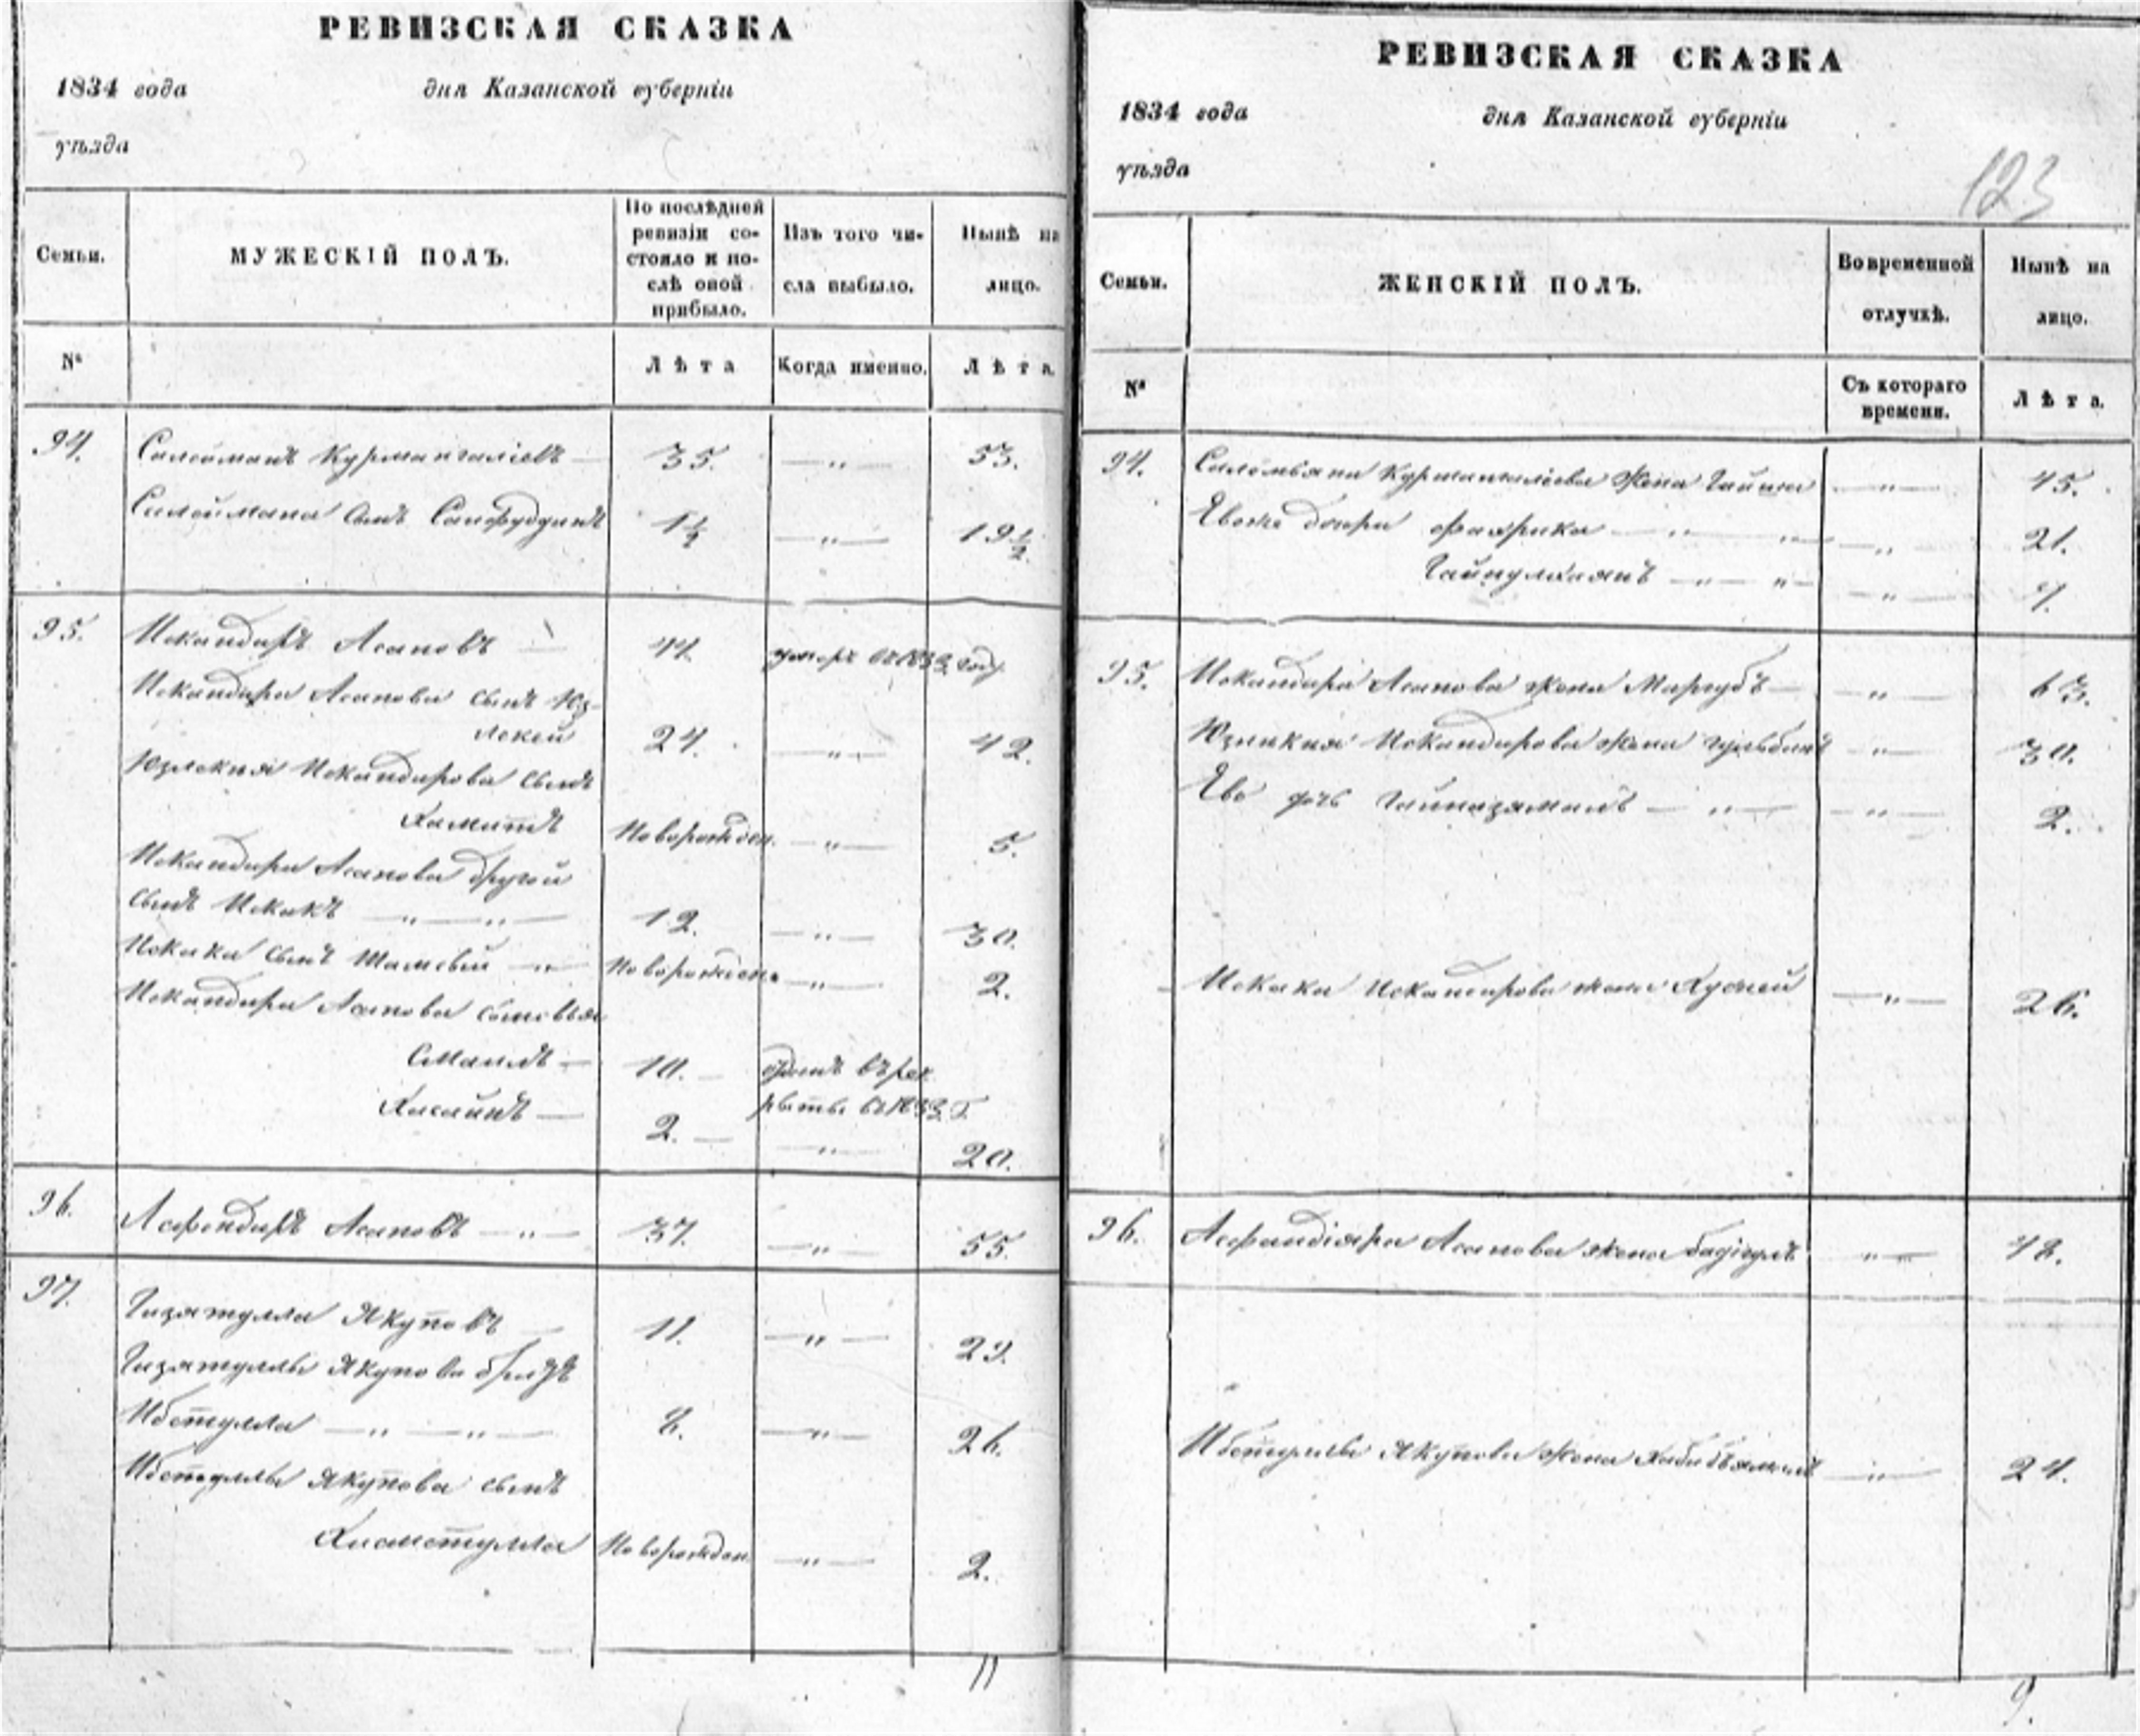 РЕВИЗСКАЯ СКАЗКА
1834 года дня Казанской губерніи
уѣзда
Семьи. МУЖЕСКІЙ ПОЛЪ. По послѣдней ревизіи состояло и послѣ оной прибыло. Изъ того числа выбыло. Нынѣ на лицо.
№ Лѣта Когда именно. Лѣта
94. Салейманъ Курмангаліевъ 35. — „ — 53.
Салеймана сынъ Сайфуддинъ 1½ — „ — 19½
95. Искандиръ Асановъ — 44. умеръ въ 1833 году
Искандира Асанова сынъ Юз-
лекей 24. — „ — 42.
Юзлекея Искандирова сынъ
Хамитъ Новорожден. — „ — 5.
Искандира Асанова другой
сынъ Искакъ — „ — „ — 12. — „ — 30.
Искака сынъ — „ — Новорожден. — „ — 2.
Искандира Асанова сыновья
Смаилъ — 10. — отданъ въ рек
руты въ 1833 г.
Хасаинъ — 2. — — „ — 20.
96. Асфендиръ Асановъ — „ — 37. — „ — 55.
97. Гизятулла Якуповъ — 11. — „ — 29.
Гизятуллы Якупова братъ
Ибетулла — „ — „ — 8. — „ — 26.
Ибетуллы Якупова сынъ
Хисметулла Новорожден. — „ — 2.
11
РЕВИЗСКАЯ СКАЗКА
1834 года дня Казанской губерніи
уѣзда
123
Семьи. ЖЕНСКІЙ ПОЛЪ. Во временной отлучкѣ. Нынѣ на лицо.
№ Съ котораго времени. Лѣта.
94. Курмангалеева жена — „ — 45.
Ево дочери — „ — „ — — „ — 21.
— „ — „ — — „ — 7.
95. Искандира Асанова жена Маргубъ — — „ — 63.
Искандирова жена Гульбанъ — „ — 30.
Ево дочь — „ — — „ — 2.
Искака Искандирова жена — „ — 26.
96. Асфандіяра Асанова жена Бадигулъ „ — 48.
Ибетуллы Якупова жена — „ — 24.
9.